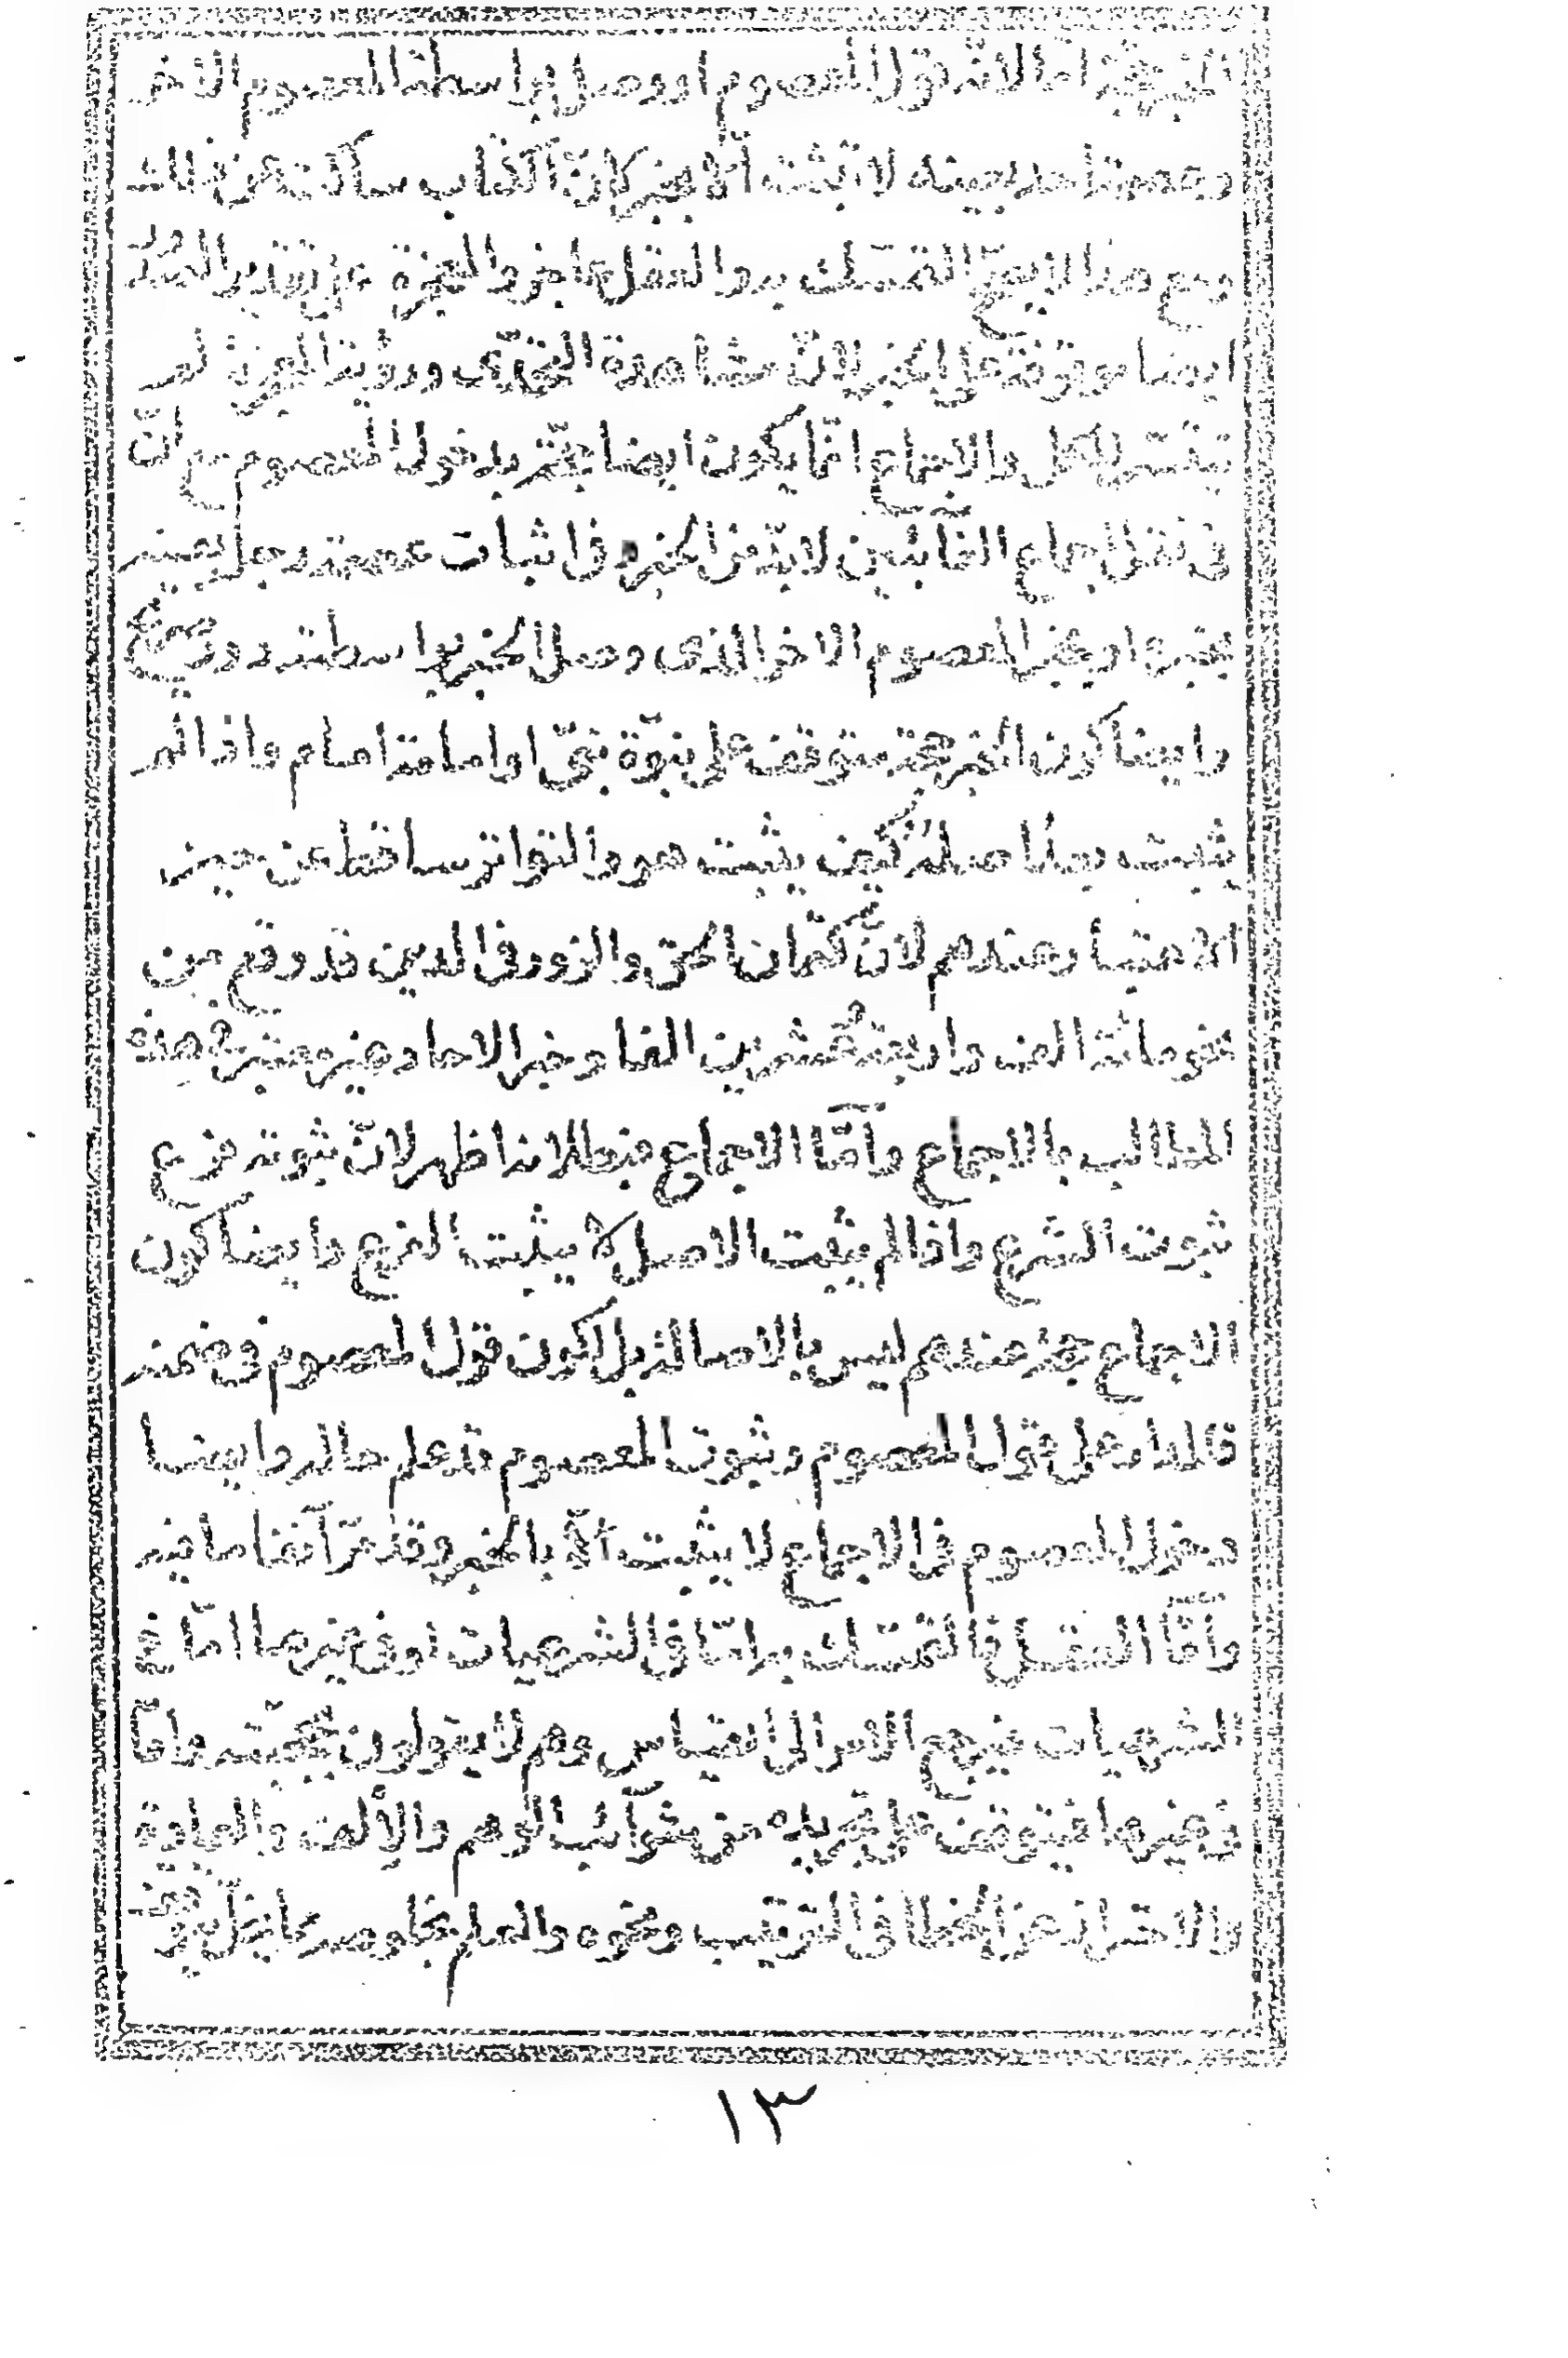 لانه قول المعصوم او وصل بواسطة المعصوم الآخر
وعصمة احد بعينه لا تثبت الا بخبر لان الكتاب ساكت عن ذلك
ومع هذا لا يصح التمسك به والنقل عاجز والمعجزة على تقدير
ايضا موقوفة على الخبر لان مشاهدة التحدى ورؤية المعجزة لم
تتيسر للكل والاجماع انما يكون ايضا حجة بدخول المعصوم مع ان
فى نقل اجماع الغائبين لا بد من الخبر وفى اثبات عصمة رجل بعينه
بخبره او بخبر المعصوم الآخر الذى وصل الخبر بواسطته دور صريح
وايضا كون الخبر حجة متوقف على نبوة نبى او امامة امام واذا لم
يثبت بعد اصله كيف يثبت هو والتواتر ساقط عن حيز
الاعتبار عندهم لان كتمان الحق والزور فى الدين قد وقع من
نحو مائة الف واربعة وعشرين الفا وخبر الاحاد غير معتبر فى هذه
المطالب بالاجماع واما الاجماع فبطلانه اظهر لان ثبوته فرع
ثبوت الشرع واذا لم يثبت الاصل لا يثبت الفرع وايضا كون
الاجماع حجة عندهم ليس بالاصالة بل لكون قول المعصوم فى ضمنه
فالمدار على قول المعصوم وثبوت المعصوم قد علم حاله وايضا
دخول المعصوم فى الاجماع لا يثبت الا بالخبر وقد مر آنفا ما فيه
واما العقل فالتمسك به اما فى الشرعيات او فى غيرها اما فى
الشرعيات فيرجع الامر الى القياس وهم لا يقولون بحجيته واما
فى غيرها فيتوقف على تجريده من شوائب الوهم والالف والعادة
والاحتراز عن الخطأ فى الترتيب ونحوه والعلم بخلوصه
١٣